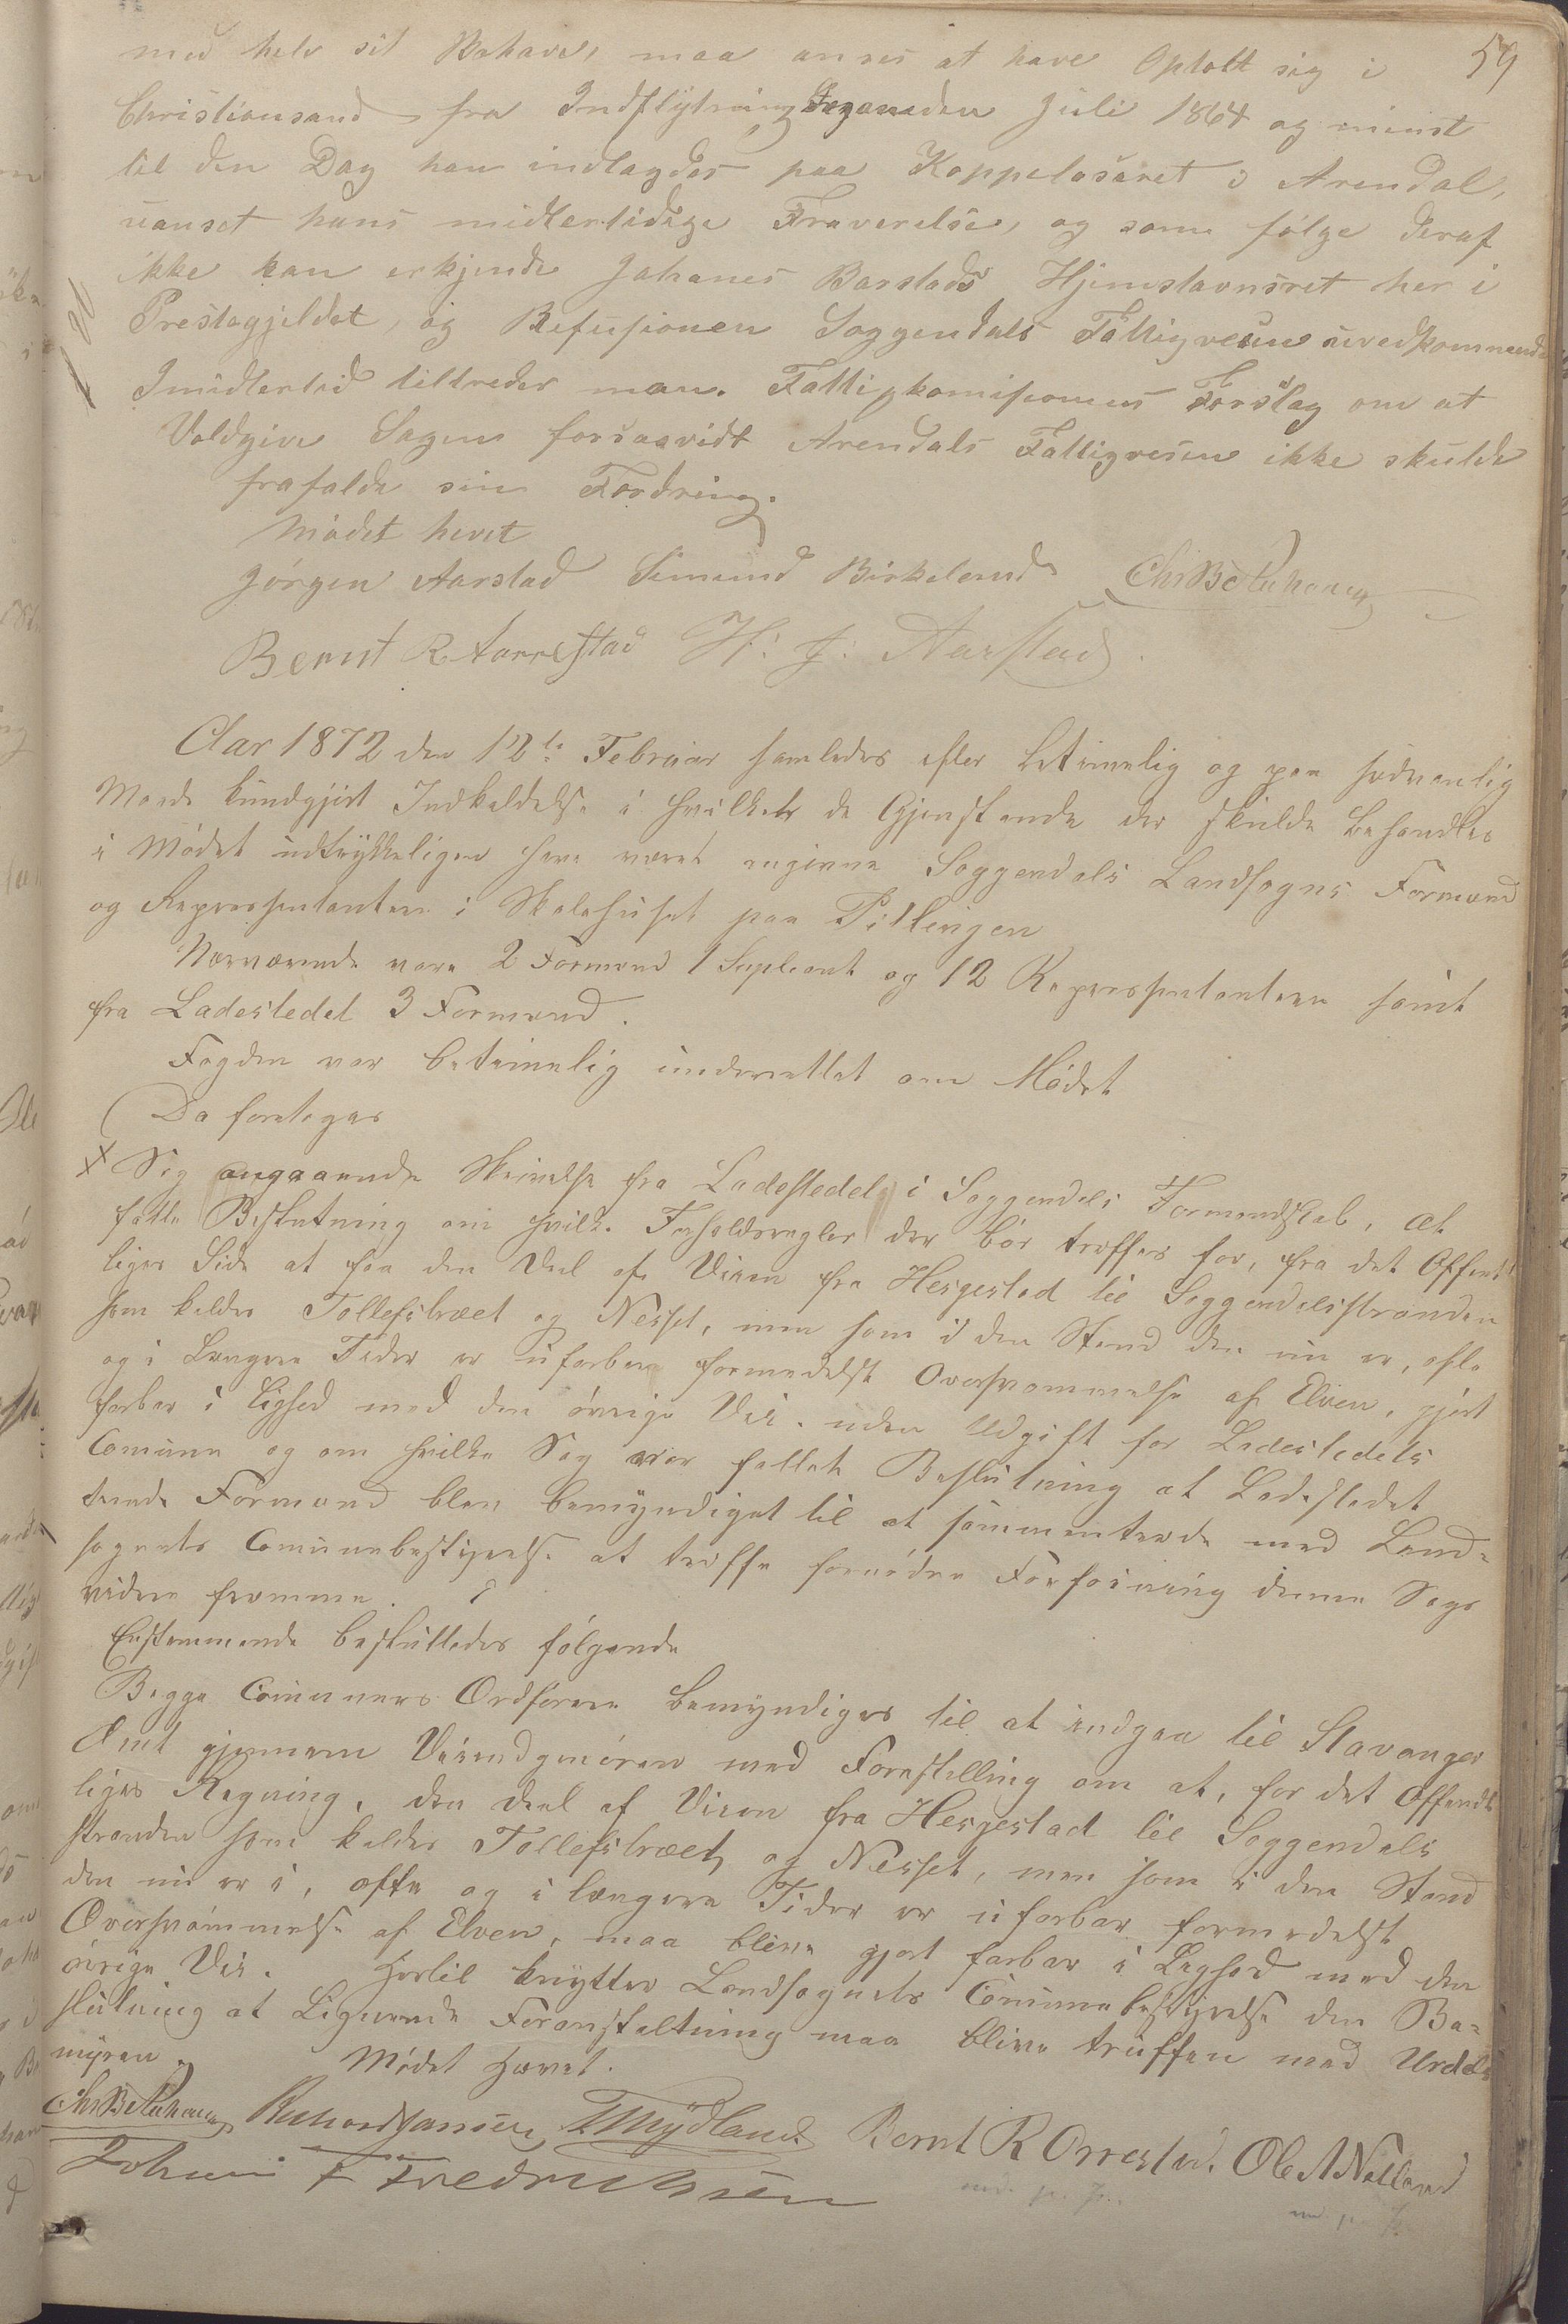 59
med hele sit Bohave, maa anses at have Opholt sig i
Christiansand fra Indflytningen den Juli 1864 og minst
til den Dag han indlagdes paa Koppelasaret i Arendal,
uanset hans midlertidige Fraverelse, og som følge deraf
ikke kan erkjende Johanes Barstads Hjemstavnsret her i
Prestegjeldet, og Refusionen Soggendals Fattigvesen uvedkommende
Imidlertid tiltreder man Fattigkomisionens Forslag om at
Voldgive Sagen forsaavidt Arendals Fattigvesen ikke skulde
frafalde sin Fordring.
Mødet hevet
Jørgen Aarstad Simund Birkeland
Bernt R Aarrestad H: J: Aarstad.
Aar 1872 den 12te Februar samledes efter betimelig og paa sedvanlig
Maade kundgjort Indkaldelse i hvilket de Gjenstande der skulde behandles
i Mødet udtrykkeligen have været angivne Soggendals Landsogns Formænd
og Representanter i Skolehuset paa Tillingen
Nærværende vare 2 Formænd 1 Supleant og 12 Representanter samt
fra Ladestedet 3 Formænd.
Fogden var betimelig underrettet om Mødet
Da foretoges
X Sag angaaende Skrivelse fra Ladestedet i Soggendals Formandskab, at
fatte Beslutning om hvilke Forholdsregler der bør treffes for, fra det Offent
liges Side at faa den Deel af Veien fra Hesgestad til Soggendalsstranden
som kaldes Tollefstræet og Nesset, men som i den Stand den nu er, ofte
og i længere Tider er ufarbar formedelst Oversvømmelse af Elven, gjort
farbar i Lighed med den øvrige Vei uden Udgift for Ladestedets
Comune og om hvilke Sag var fattet Beslutning at Ladestedet
Formænd blev bemyndiget til at sammentræde med Land-
sognets Comunebestyrelse at treffe fornøden Forføining denne Sags
videre fremme.
Enstemmende besluttedes følgende
Begge Comuners Ordførere bemyndiges til at indgaa til Stavanger
Amt gjennem Veiendgeniøren med Forestilling om at, for det Offendt
liges Regning, den Deel af Veien fra Hesgestad til Soggendals
stranden som kaldes Tollefstræet og Nesset, men som i den Stand
den nu er i, ofte og i længere Tider er ufarbar formedelst
Oversvømmelse af Elven, maa blive gjort farbar i Lighed med den
øvrige Vei. Hertil knytter Landsognets Comunebestyrelse den Be-
slutning at Lignende Foranstaltning maa blive truffen med Urdals
myren. Mødet Hævet.
Richard Jansen T Mydland Bernt R Orrestad. Ole A Nalland
Johan F Fredriksen